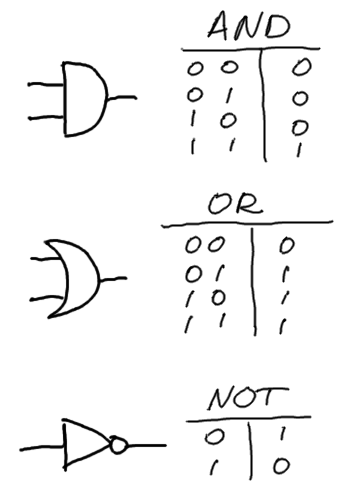 AND
0 0 0
0 1 0
1 0 0
1 1 1
OR
0 0 0
0 1 1
1 0 1
1 1 1
NOT
0 1
1 0